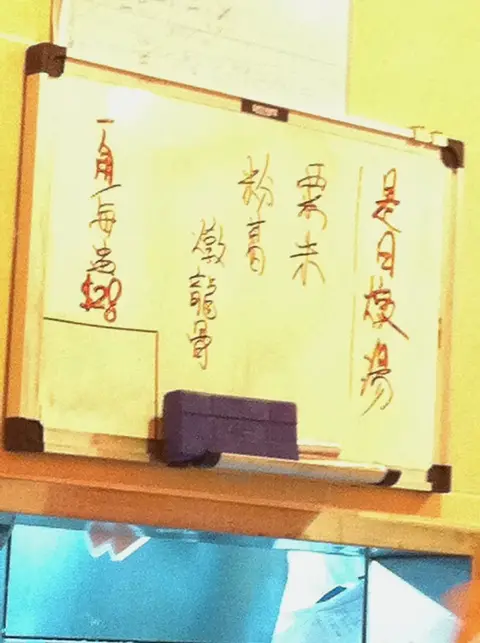 是日燉湯
粟米
粉葛
燉龍骨
每盅
$28